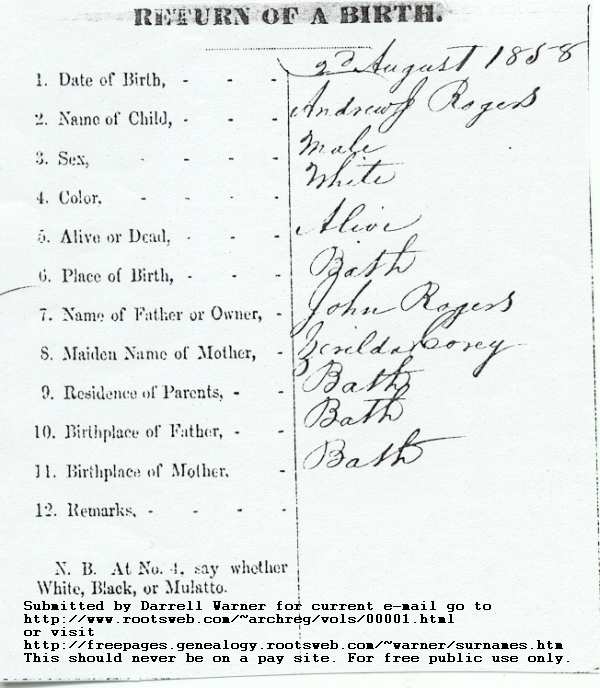 RETURN OF A BIRTH.
1. Date of Birth, - - - 2d August 1858
2. Name of Child, - - - Andrew J Rogers
3. Sex, - - - - Male
4. Color, - - - - White
5. Alive or Dead, - - - Alive
6. Place of Birth, - - - Bath
7. Name of Father or Owner, - John Rogers
8. Maiden Name of Mother, - Corey
9. Residence of Parents, - - Bath
10. Birthplace of Father, - - Bath
11. Birthplace of Mother, - Bath
12. Remarks, - - - -
N. B. At No. 4, say whether
White, Black, or Mulatto.
Submitted by Darrell Warner for current e-mail go to
http://www.rootsweb.com/~archreg/vols/00001.html
or visit
http://freepages.genealogy.rootsweb.com/~warner/surnames.htm
This should never be on a pay site. For free public use only.